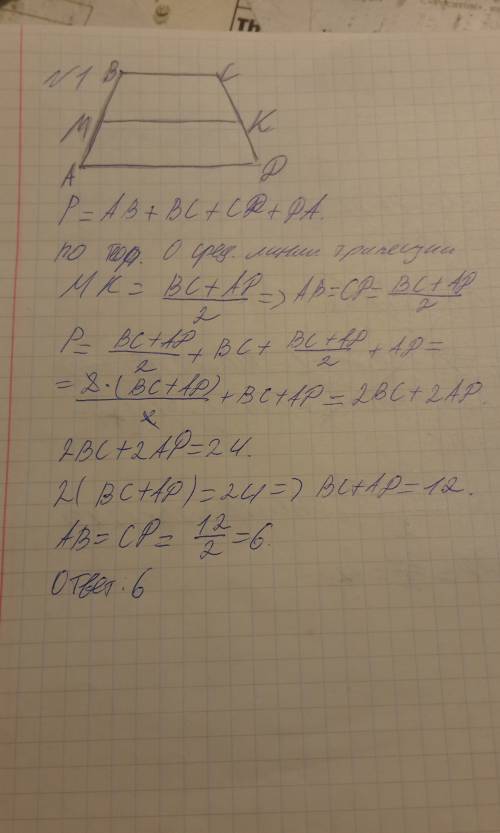 Th
№1
B C
M K
A D
P = AB + BC + CD + DA.
по теор. О сред. линии трапеции
MK = \frac{BC + AD}{2} => AB = CD = \frac{BC + AD}{2}
P = \frac{BC + AD}{2} + BC + \frac{BC + AD}{2} + AD =
= \frac{2 · (BC + AD)}{2} + BC + AD = 2BC + 2AD
2BC + 2AD = 24.
2(BC + AD) = 24 => BC + AD = 12.
AB = CD = \frac{12}{2} = 6.
Ответ. 6